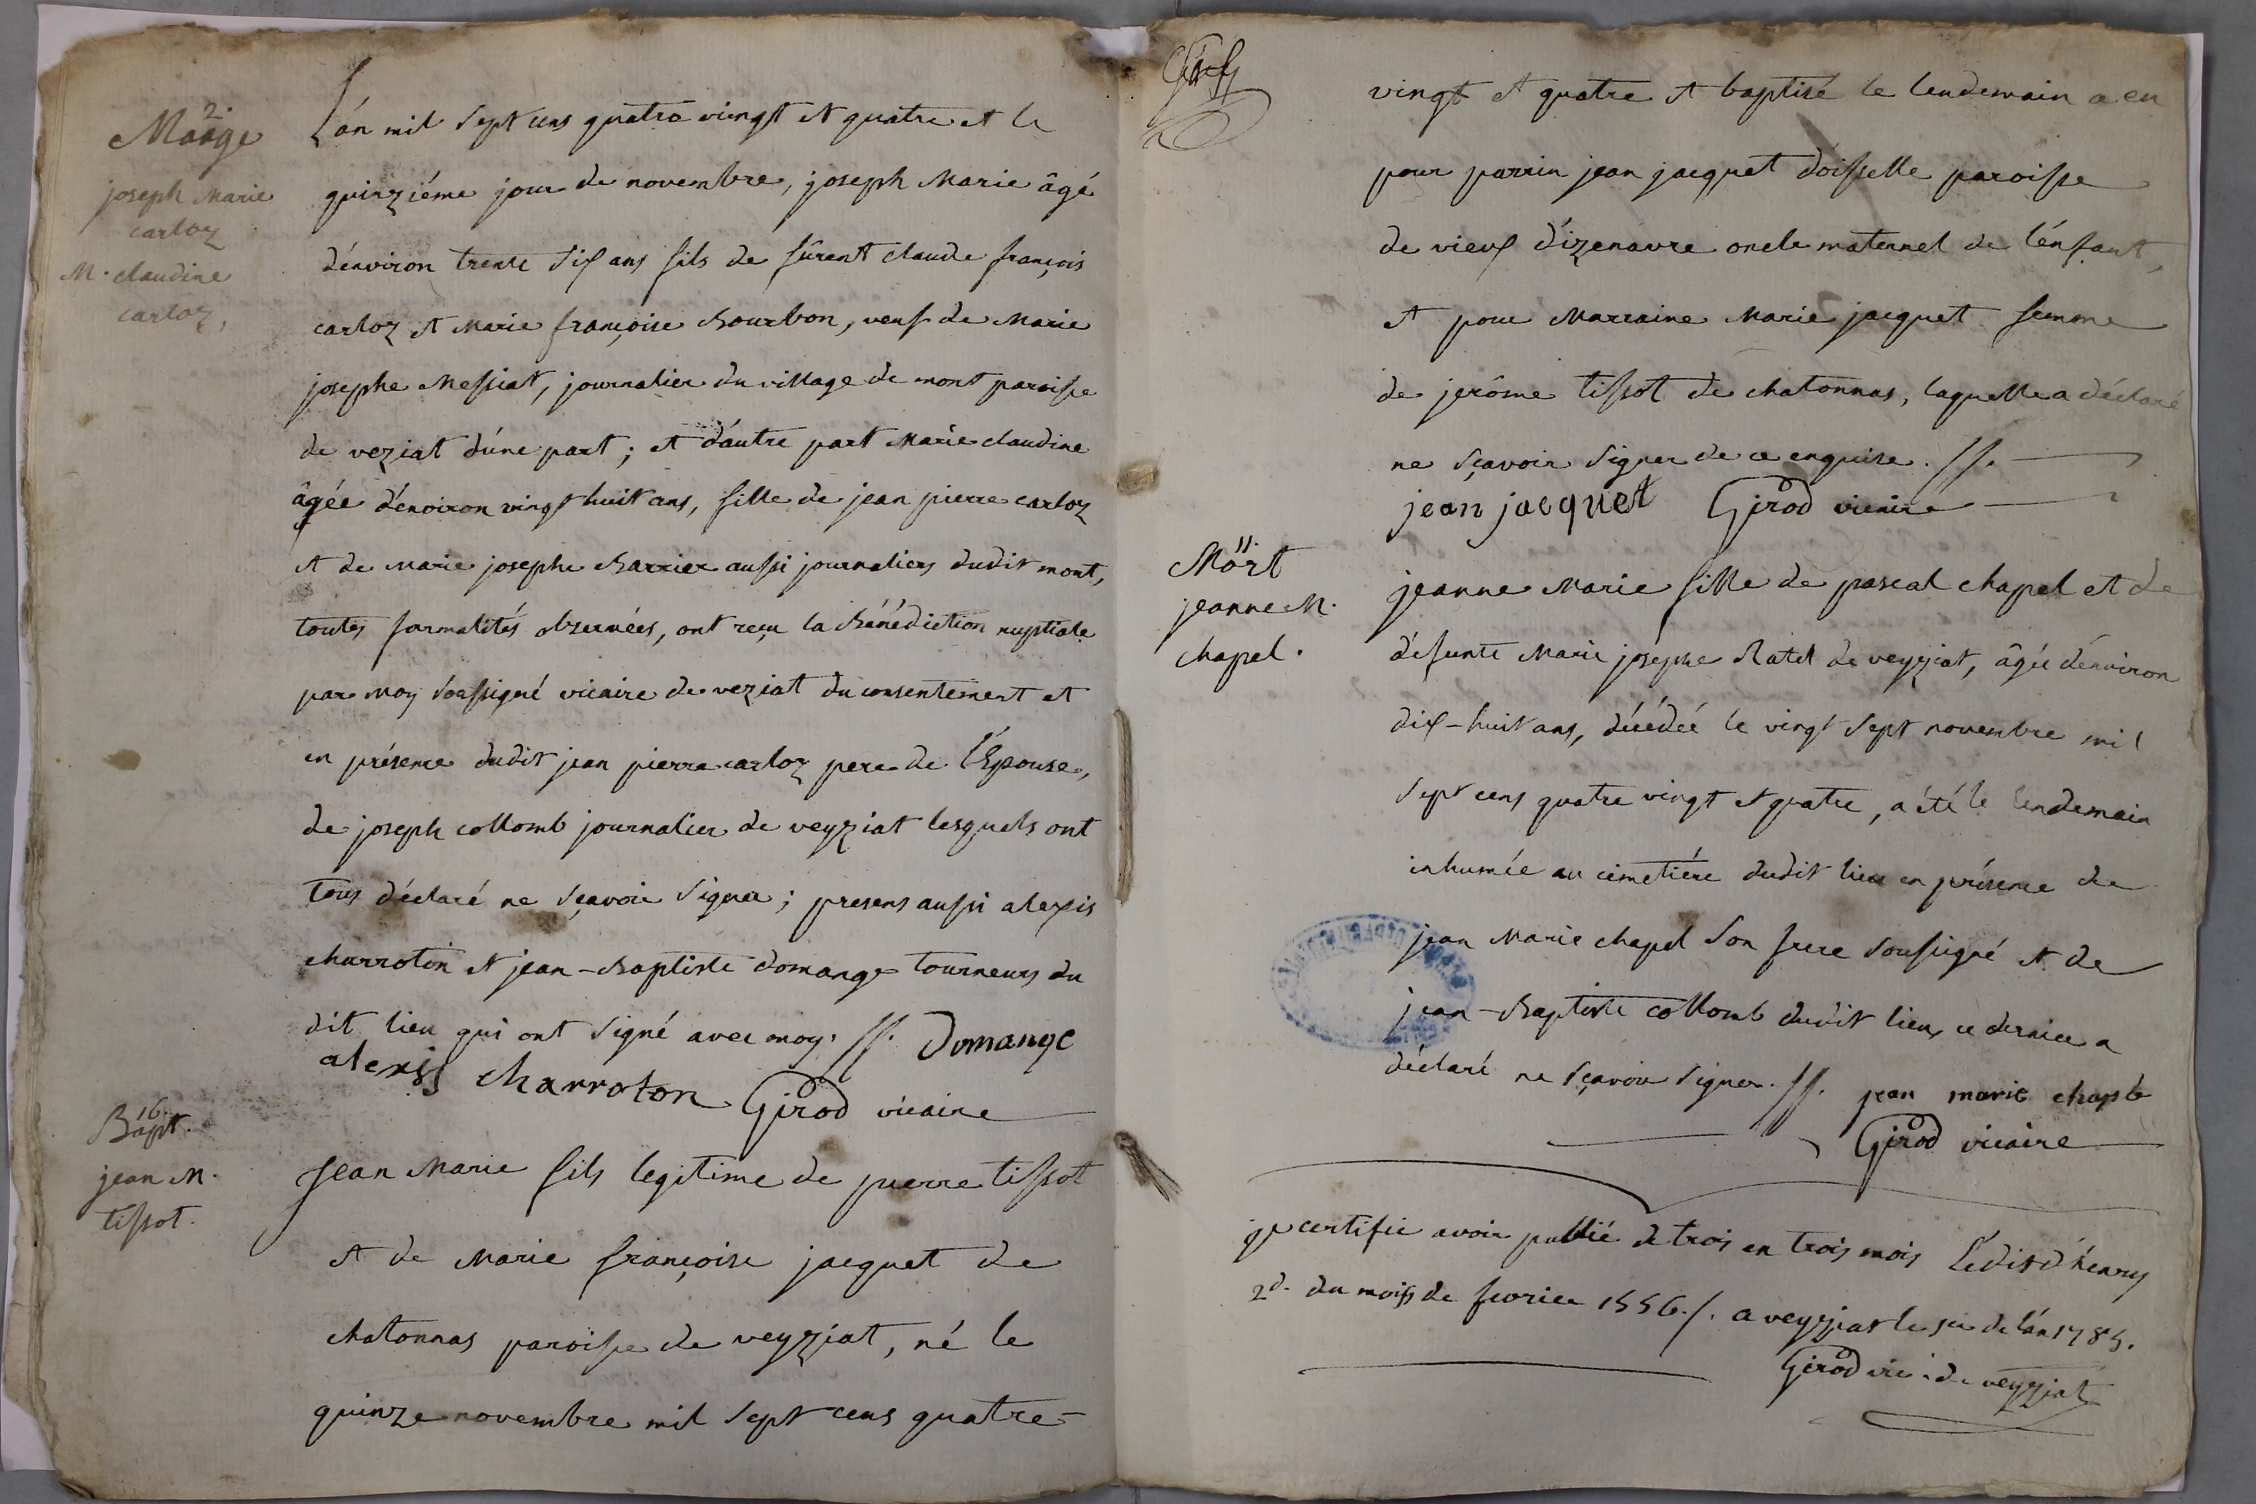 2.
Mariage
joseph Marie
carloz
M. claudine
carloz,
L'an mil sept cens quatre vingt et quatre et le
quinziéme jour de novembre, joseph Marie âgé
d'environ trente six ans fils de fûrent claude françois
carloz et Marie françoise Bourbon, veuf de Marie
josephe Messiat, journalier du village de mont paroisse
de veziat d'une part ; et d'autre part Marie claudine
âgée d'environ vingt huit ans, fille de jean pierre carloz
et de Marie josephe Barrier aussi journaliers dudit mont,
toutes formalités observées, ont reçu la Bénédiction nuptiale
par moy soussigné vicaire de veziat du consentement et
en présence dudit jean pierre carloz pere de l'Epouse,
de joseph collomb journalier de veyziat lesquels ont
tous déclaré ne sçavoir signer ; presens aussi alexis
charroton et jean-Baptiste domange tourneurs du
dit lieu qui ont signé avec moy. //. Domange
alexis charroton Girod vicaire
16.
Bapt.
jean M.
tissot.
Jean Marie fils legitime de pierre tissot
et de Marie françoise jacquet de
chatonnas paroisse de veyziat, né le
quinze novembre mil sept cens quatre-
vingt et quatre et baptisé le lendemain a eu
pour parrin jean jacquet d'oisselle paroisse
de vieux d'izenavre oncle maternel de l'enfant,
et pour Marraine Marie jacquet femme
de jerôme tissot de chatonnas, laquelle a déclaré
ne sçavoir signer de ce enquise. //.
jean jacquet Girod vicaire
11.
Mort
jeanne M.
chapel.
jeanne Marie fille de pascal chapel et de
défunte Marie josephe Ratel de veyziat, âgée d'environ
dix-huit ans, décédée le vingt sept novembre mil
sept cens quatre vingt et quatre, a été le lendemain
inhumée au cimetiére dudit lieu en présence de
jean Marie chapel son frere soussigné et de
jean-Baptiste collomb dudit lieu, ce dernier a
déclaré ne sçavoir signer. //. jean marie chaple
Girod vicaire
je certifie avoir publié de trois en trois mois L'édit d'henry
2d. du mois de fevrier 1556./. a veyziat le 1er de l'an 1785.
Girod vic. de veyziat